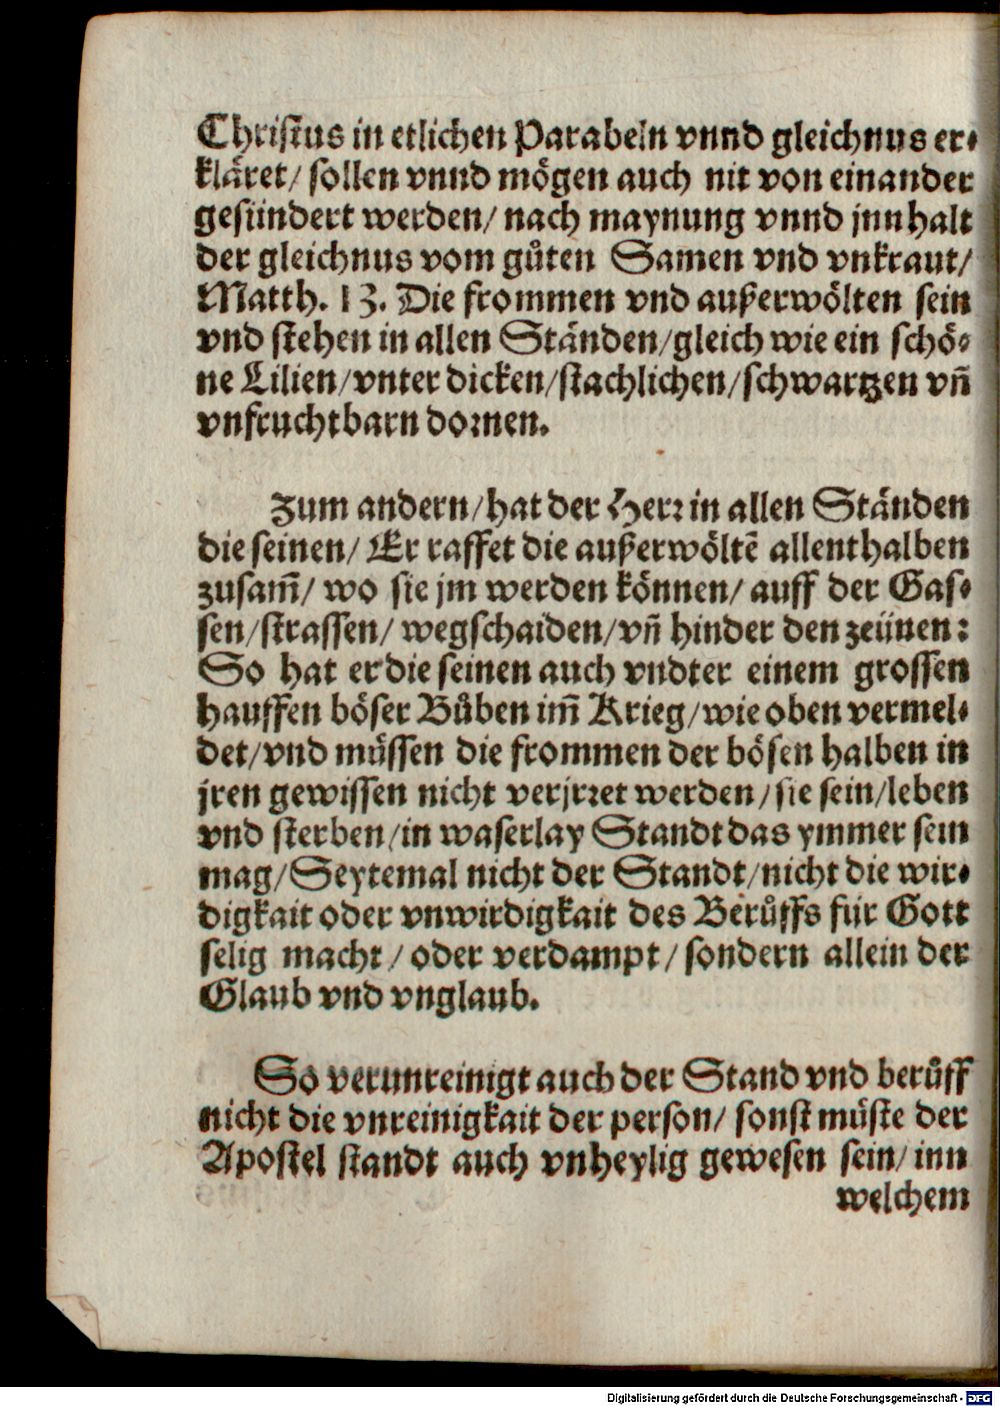 Christus in etlichen Parabeln vnnd gleichnus er⸗
kläret/ sollen vnnd mögen auch nit von einander
gesündert werden/ nach maynung vnnd jnnhalt
der gleichnus vom gůten Samen vnd vnkraut/
Matth. 13. Die frommen vnd außerwölten sein
vnd stehen in allen Ständen/gleich wie ein schö⸗
ne Lilien/vnter dicken/stachlichen/schwartzen vñ
vnfruchtbarn dornen.
Zum andern/hat der Herr in allen Ständen
die seinen/ Er raffet die außerwöltẽ allenthalben
zusam̃/ wo sie jm werden können/ auff der Gas⸗
sen/strassen/ wegschaiden/vñ hinder den zeünen:
So hat er die seinen auch vndter einem grossen
hauffen böser Bůben im̃ Krieg/wie oben vermel⸗
det/vnd müssen die frommen der bösen halben in
jren gewissen nicht verjrret werden/sie sein/leben
vnd sterben/in waserlay Standt das ymmer sein
mag/Seytemal nicht der Standt/nicht die wir⸗
digkait oder vnwirdigkait des Berůffs für Gott
selig macht/oder verdampt/sondern allein der
Glaub vnd vnglaub.
So verunreinigt auch der Stand vnd berůff
nicht die vnreinigkait der person/ sonst müste der
Apostel standt auch vnheylig gewesen sein/ inn
welchem
Digitalisierung gefördert durch die Deutsche Forschungsgemeinschaft - DFG